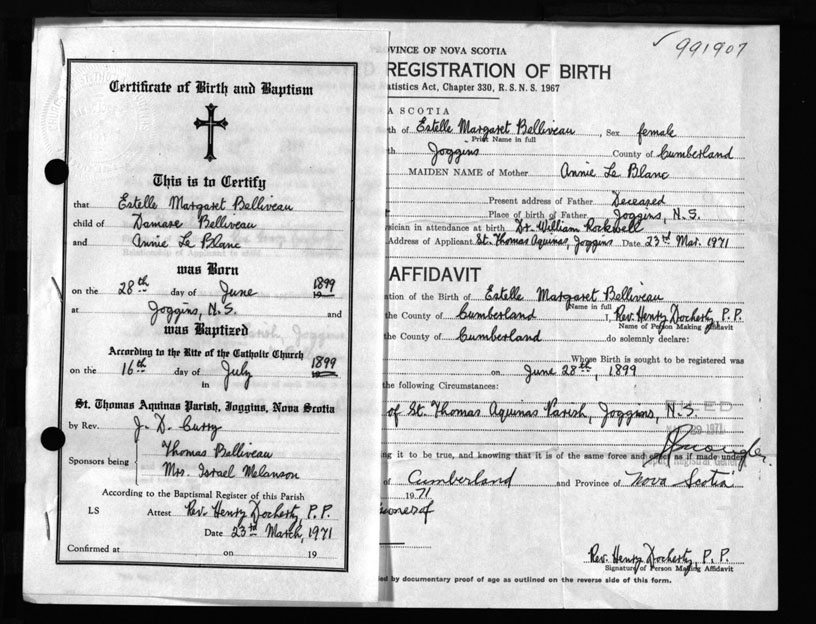 Certificate of Birth and Baptism
This is to Certify
that Estelle Margaret Belliveau
child of Damase Belliveau
and Annie Le Blanc
was Born
on the 28th day of June 1899
19
at Joggins, N.S. and
was Baptized
According to the Rite of the Catholic Church
on the 16th day of July 1899
in
St. Thomas Aquinas Parish, Joggins, Nova Scotia
by Rev. J. D. Curry
Sponsors being Thomas Belliveau
Mrs. Israel Melanson
According to the Baptismal Register of this Parish
LS Attest Rev. Henry Docherty, P. P.
Date 23rd March, 1971
Confirmed at on 19
991907
VINCE OF NOVA SCOTIA
REGISTRATION OF BIRTH
atistics Act, Chapter 330, R. S. N. S. 1967
A SCOTIA
th of Estelle Margaret Belliveau, Sex female
Print Name in full
th Joggins County of Cumberland
MAIDEN NAME of Mother Annie Le Blanc
Present address of Father Deceased
Place of birth of Father Joggins, N.S.
sician in attendance at birth Dr. William Rockwell
Address of Applicant St. Thomas Aquinas, Joggins Date 23rd Mar. 1971
AFFIDAVIT
ation of the Birth of Estelle Margaret Belliveau
Name in full
the County of Cumberland, Rev. Henry Docherty, P. P.
Name of Person Making Affidavit
the County of Cumberland do solemnly declare:
Whose Birth is sought to be registered was
on June 28th, 1899
the following Circumstances:
of St. Thomas Aquinas Parish, Joggins, N.S.
FILED
29 1971
Registrar General
ing it to be true, and knowing that it is of the same force and effect as if made under
of Cumberland and Province of Nova Scotia
1971
Rev. Henry Docherty, P. P.
Signature of Person Making Affidavit
ied by documentary proof of age as outlined on the reverse side of this form.